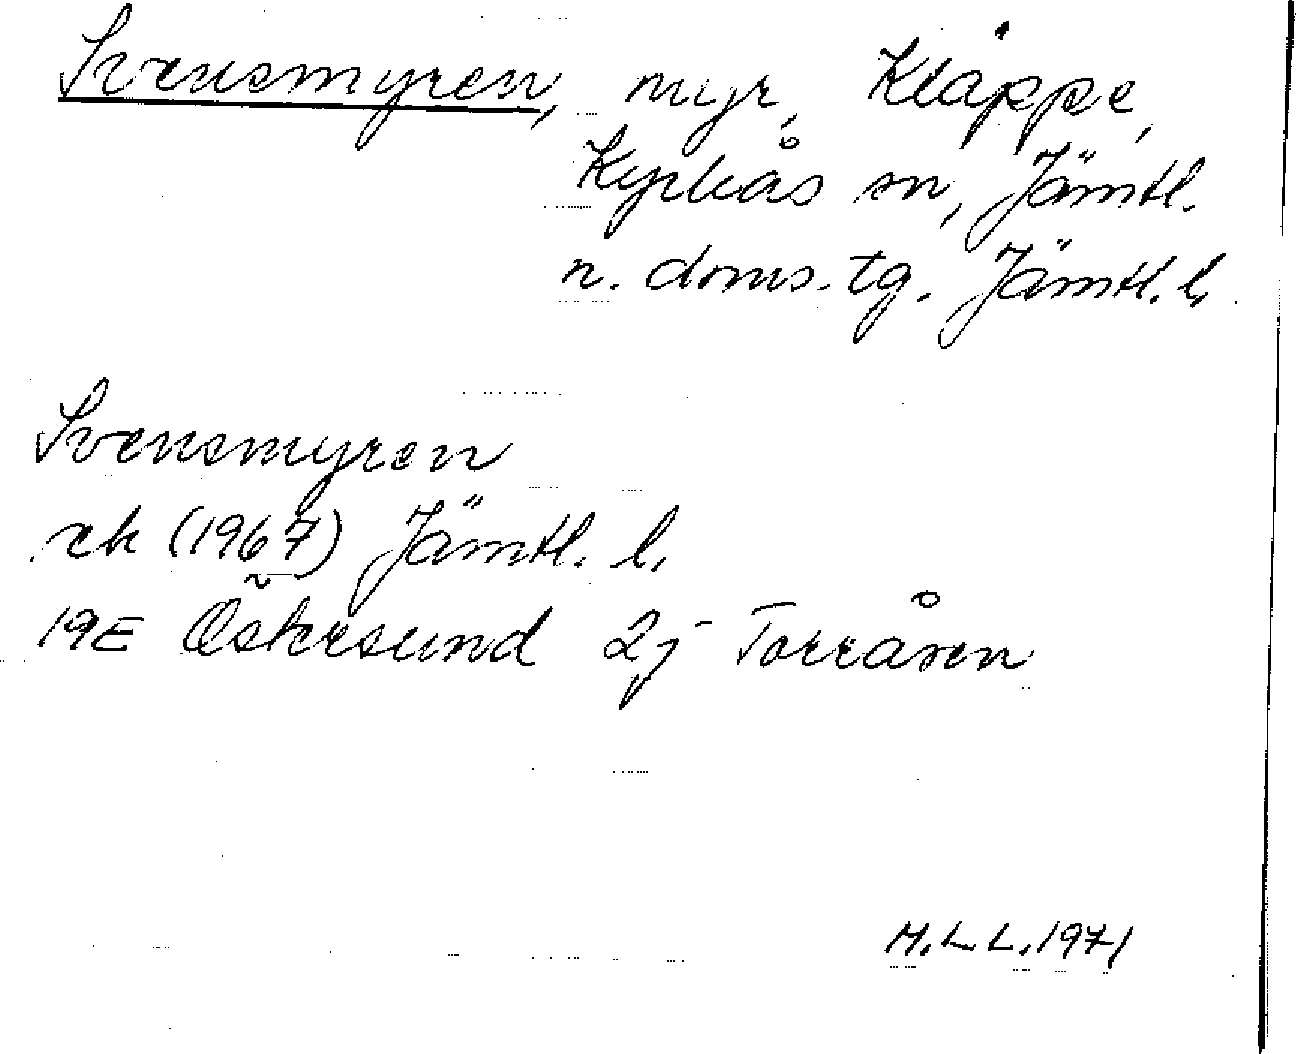 Svensmyren, myr, Kläppe,
Kyrkås sn, Jämtl.
n. doms. tg. Jämtl. l.
Svensmyren
ek (1967) Jämtl. l.
19E Östersund 2j Torråsen
M.L L. 1971